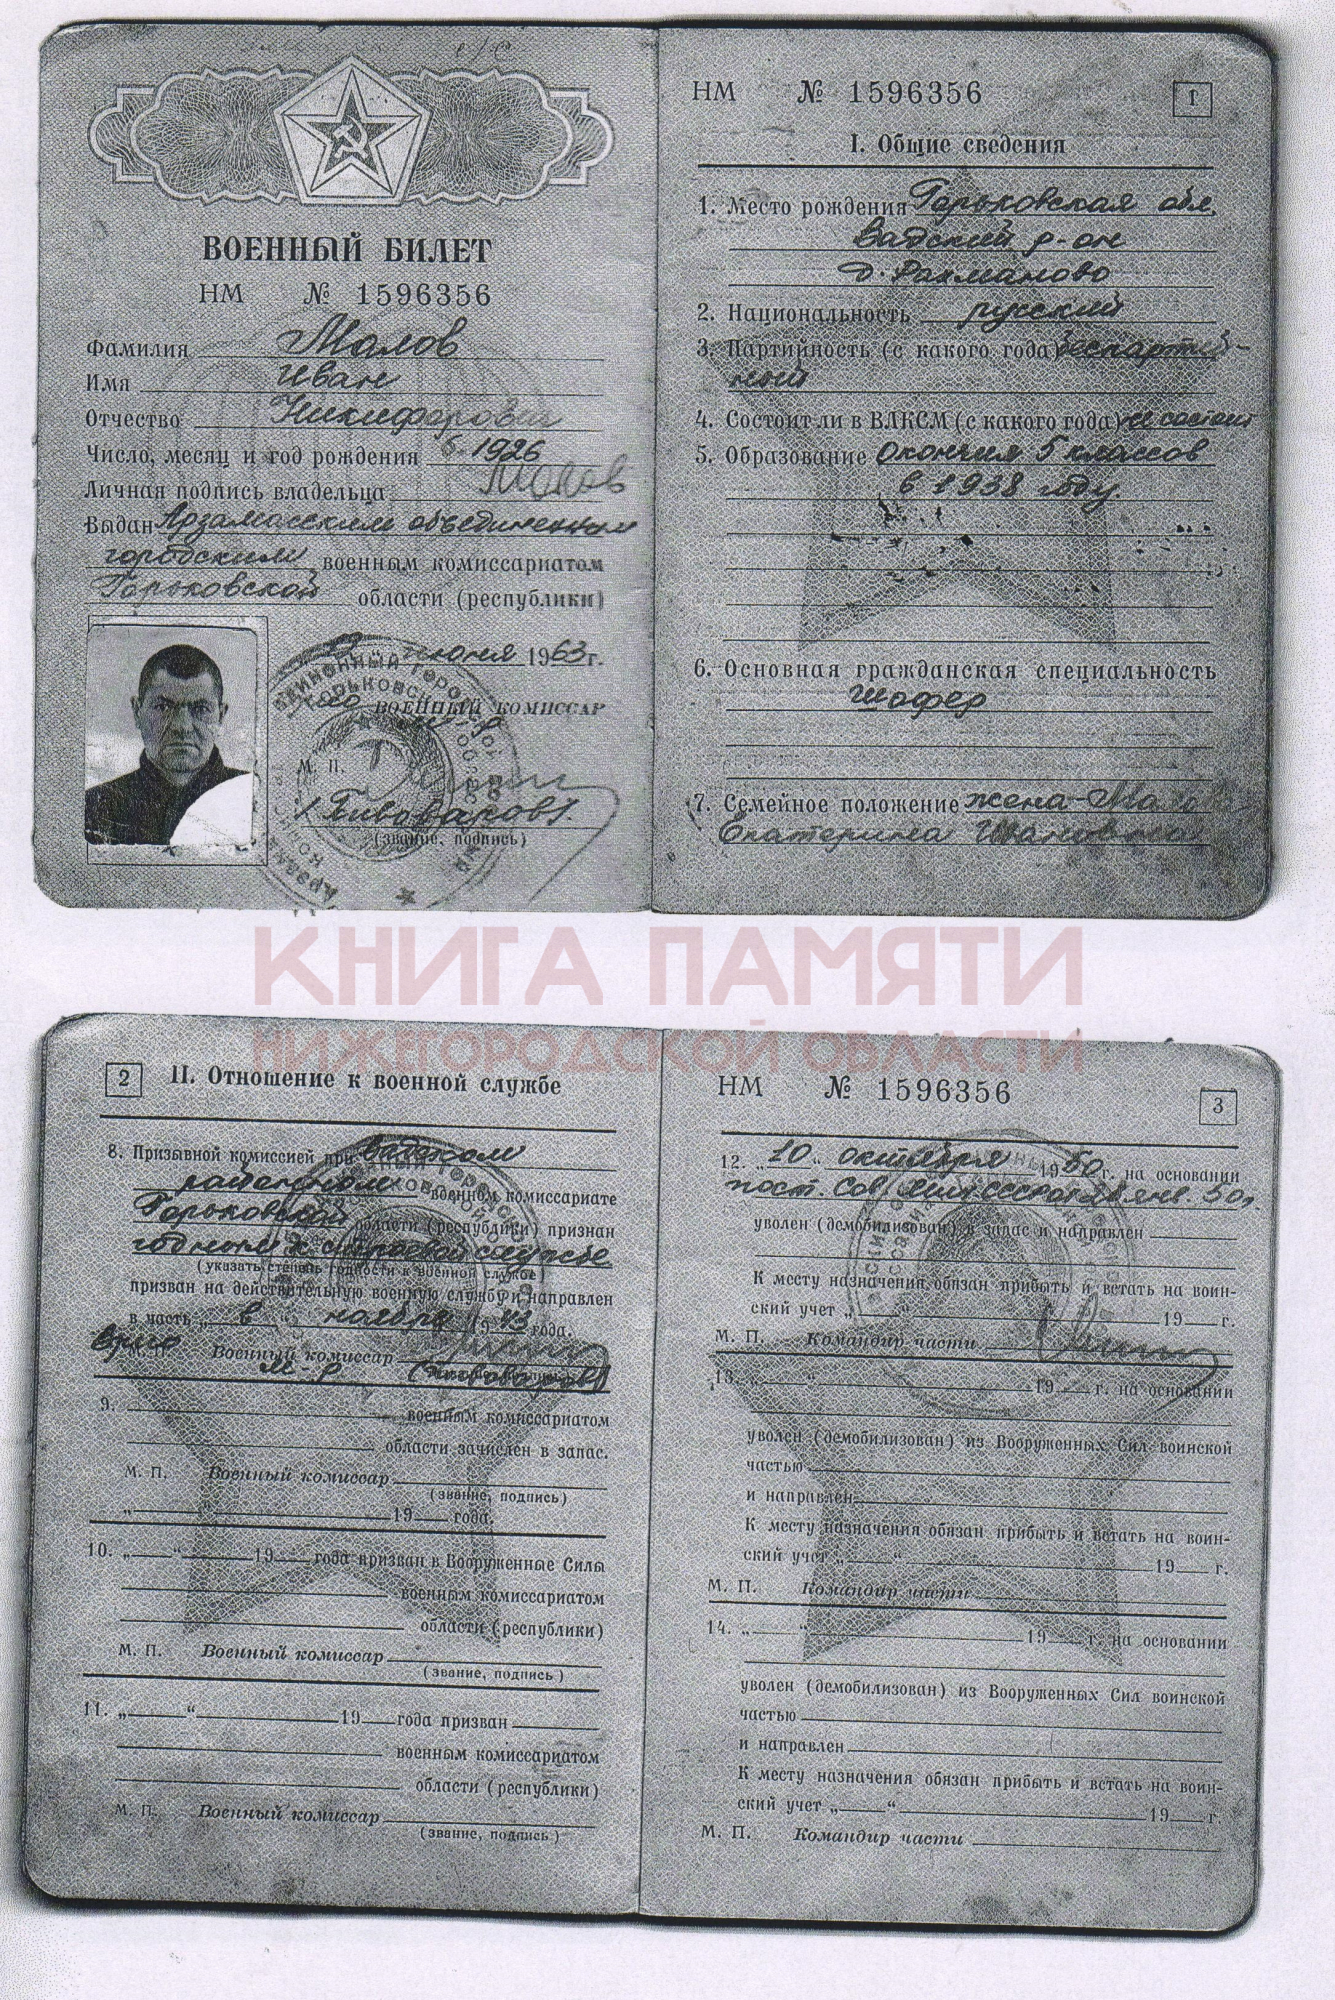 ВОЕННЫЙ БИЛЕТ
НМ № 1596356
Фамилия Малов
Имя Иван
Отчество Никифорович
Число, месяц и год рождения 1926
Личная подпись владельца Малов
Выдан Арзамасским объединенным
городским военным комиссариатом
Горьковской области (республики)
июня 1963 г.
ВОЕННЫЙ КОМИССАР
М. П.
(Пивоваров).
(звание, подпись)
НМ № 1596356
1
I. Общие сведения
1. Место рождения Горьковская обл.
Вадский р-он
д. Рахманово
2. Национальность русский
3. Партийность (с какого года) беспартий-
ный
4. Состоит ли в ВЛКСМ (с какого года) не состоит
5. Образование Окончил 5 классов
в 1938 году.
6. Основная гражданская специальность
шофер
7. Семейное положение жена-Малова
Екатерина Ивановна
КНИГА ПАМЯТИ
НИЖЕГОРОДСКОЙ ОБЛАСТИ
2
II. Отношение к военной службе
8. Призывной комиссией при Вадском
районном военном комиссариате
Горьковской области (республики) признан
годным к строевой службе
(указать степень годности к военной службе)
призван на действительную военную службу и направлен
в часть „ в “ ноябре 1943 года.
Врио М. П. Военный комиссар
м-р (Пивоваров)
9. военным комиссариатом
области зачислен в запас.
М. П. Военный комиссар
(звание, подпись)
„ “ 19 года.
10. „ “ 19 года призван в Вооруженные Силы
военным комиссариатом
области (республики)
М. П. Военный комиссар
(звание, подпись)
11. „ “ 19 года призван
военным комиссариатом
области (республики)
М. П. Военный комиссар
(звание, подпись)
НМ № 1596356
3
12. „ 10 “ октября 1950 г. на основании
пост. Сов. Мин. СССР от янв. 50 г.
уволен (демобилизован) в запас и направлен
К месту назначения обязан прибыть и встать на воин-
ский учет „ “ 19 г.
М. П. Командир части
13. „ “ 19 г. на основании
уволен (демобилизован) из Вооруженных Сил воинской
частью
и направлен
К месту назначения обязан прибыть и встать на воин-
ский учет „ “ 19 г.
М. П. Командир части
14. „ “ 19 г. на основании
уволен (демобилизован) из Вооруженных Сил воинской
частью
и направлен
К месту назначения обязан прибыть и встать на воин-
ский учет „ “ 19 г
М. П. Командир части